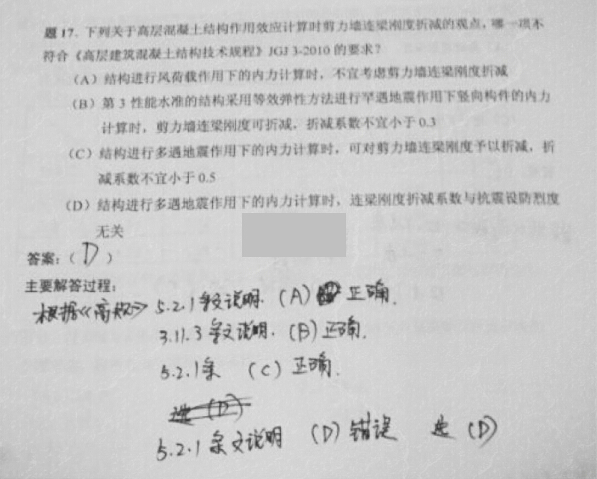 题 17. 下列关于高层混凝土结构作用效应计算时剪力墙连梁刚度折减的观点,哪一项不
符合《高层建筑混凝土结构技术规程》JGJ 3-2010 的要求?
(A)结构进行风荷载作用下的内力计算时,不宜考虑剪力墙连梁刚度折减
(B)第 3 性能水准的结构采用等效弹性方法进行罕遇地震作用下竖向构件的内力
计算时,剪力墙连梁刚度可折减,折减系数不宜小于 0.3
(C)结构进行多遇地震作用下的内力计算时,可对剪力墙连梁刚度予以折减,折
减系数不宜小于 0.5
(D)结构进行多遇地震作用下的内力计算时,连梁刚度折减系数与抗震设防烈度
无关
答案:( D )
主要解答过程:
根据《高规》5.2.1条文说明. (A) 正确.
3.11.3 条文说明. (B)正确.
5.2.1条 (C)正确.
选 (D)
5.2.1 条文说明 (D)错误 选 (D)